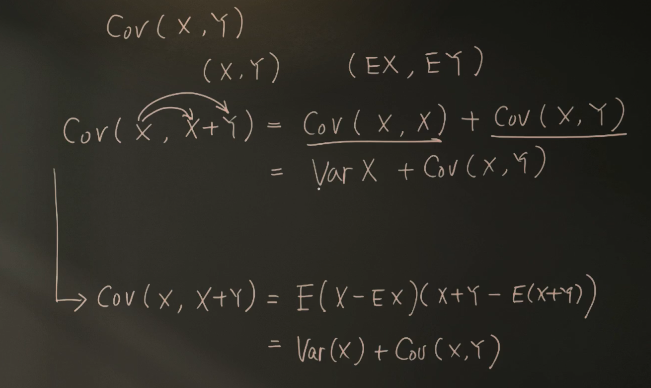 Cov(X,Y)
(X,Y) (EX, EY)
Cov(X, X+Y) = Cov(X, X) + Cov(X,Y)
= Var X + Cov(X,Y)
Cov(X, X+Y) = E(X-EX)(X+Y - E(X+Y))
= Var(X) + Cov(X,Y)